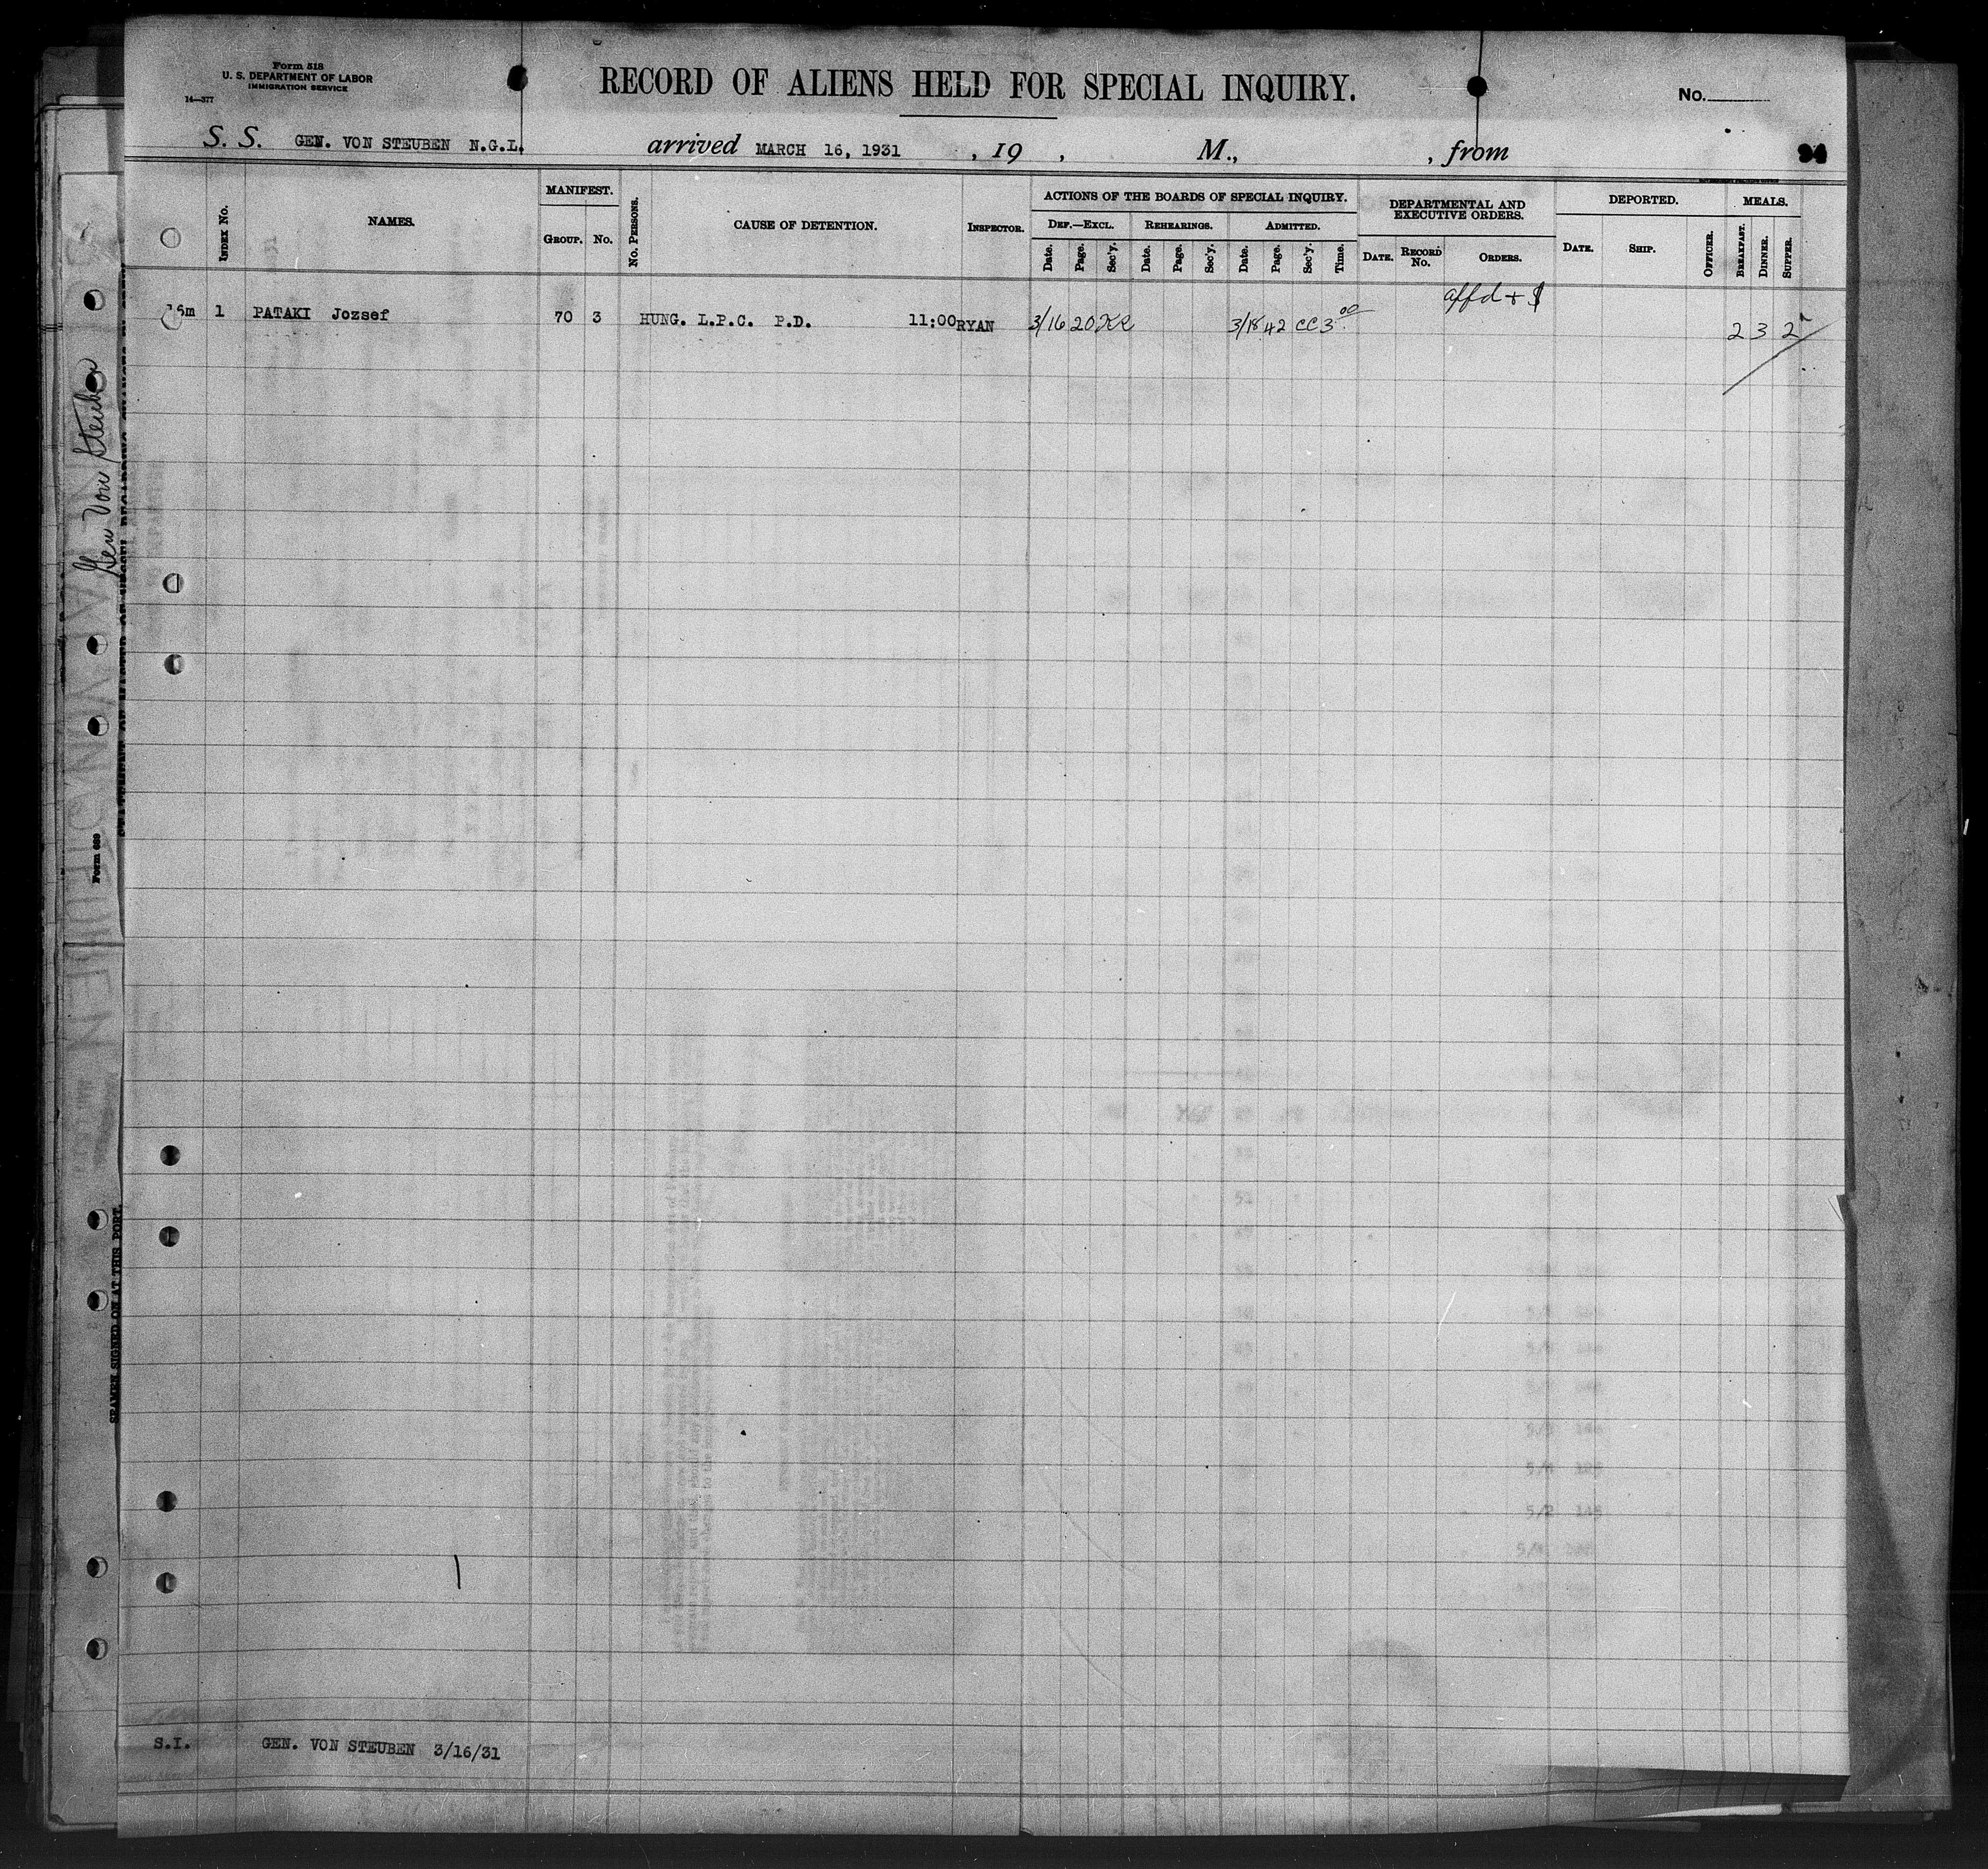 Form 518
U. S. DEPARTMENT OF LABOR
IMMIGRATION SERVICE
14—377
RECORD OF ALIENS HELD FOR SPECIAL INQUIRY.
No.
S. S. GEN. VON STEUBEN N.G.L. arrived MARCH 16, 1931 , 19 , M., , from
94
INDEX No.
NAMES.
MANIFEST.
GROUP. No.
No. PERSONS.
CAUSE OF DETENTION.
INSPECTOR.
ACTIONS OF THE BOARDS OF SPECIAL INQUIRY.
DEF.—EXCL. REHEARINGS. ADMITTED.
Date. Page. Sec'y. Date. Page. Sec'y. Date. Page. Sec'y. Time.
DEPARTMENTAL AND
EXECUTIVE ORDERS.
DATE. RECORD No. ORDERS.
DEPORTED.
DATE. SHIP. OFFICER.
MEALS.
BREAKFAST. DINNER. SUPPER.
affd + $
m 1 PATAKI Jozsef 70 3 HUNG. L.P.C. P.D. 11:00 RYAN 3/16 20 3/18 42 CC 3 00 2 3 2
S.I. GEN. VON STEUBEN 3/16/31
Gen Von Steuben
Form 689
SEAMEN SIGNED ON AT THIS PORT.